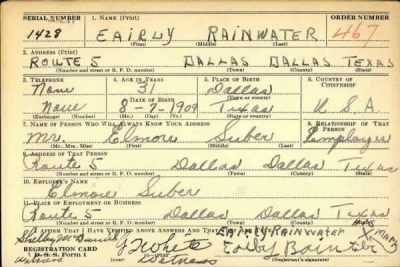 SERIAL NUMBER 1. NAME (Print) ORDER NUMBER
1428 EAIRLY RAINWATER 467
(First) (Middle) (Last)
2. ADDRESS (Print)
ROUTE 5 DALLAS DALLAS TEXAS
(Number and street or R. F. D. number) (Town) (County) (State)
3. TELEPHONE 4. AGE IN YEARS 5. PLACE OF BIRTH 6. COUNTRY OF CITIZENSHIP
None 31 Dallas
DATE OF BIRTH (Town or county)
None 8-7-1909 Texas U.S.A.
(Exchange) (Number) (Mo.) (Day) (Yr.) (State or country)
7. NAME OF PERSON WHO WILL ALWAYS KNOW YOUR ADDRESS 8. RELATIONSHIP OF THAT PERSON
Mr. Elmore Suber Employer
(Mr., Mrs., Miss) (First) (Middle) (Last)
9. ADDRESS OF THAT PERSON
Route 5 Dallas Dallas Texas
(Number and street or R. F. D. number) (Town) (County) (State)
10. EMPLOYER'S NAME
Elmore Suber
11. PLACE OF EMPLOYMENT OR BUSINESS
Route 5 Dallas Dallas Texas
(Number and street or R. F. D. number) (Town) (County) (State)
I AFFIRM THAT I HAVE VERIFIED ABOVE ANSWERS AND THAT THEY ARE TRUE.
EAIRLY RAINWATER HIS MARK
witness J White
REGISTRATION CARD Witness
D. S. S. Form 1 (Registrant's signature)